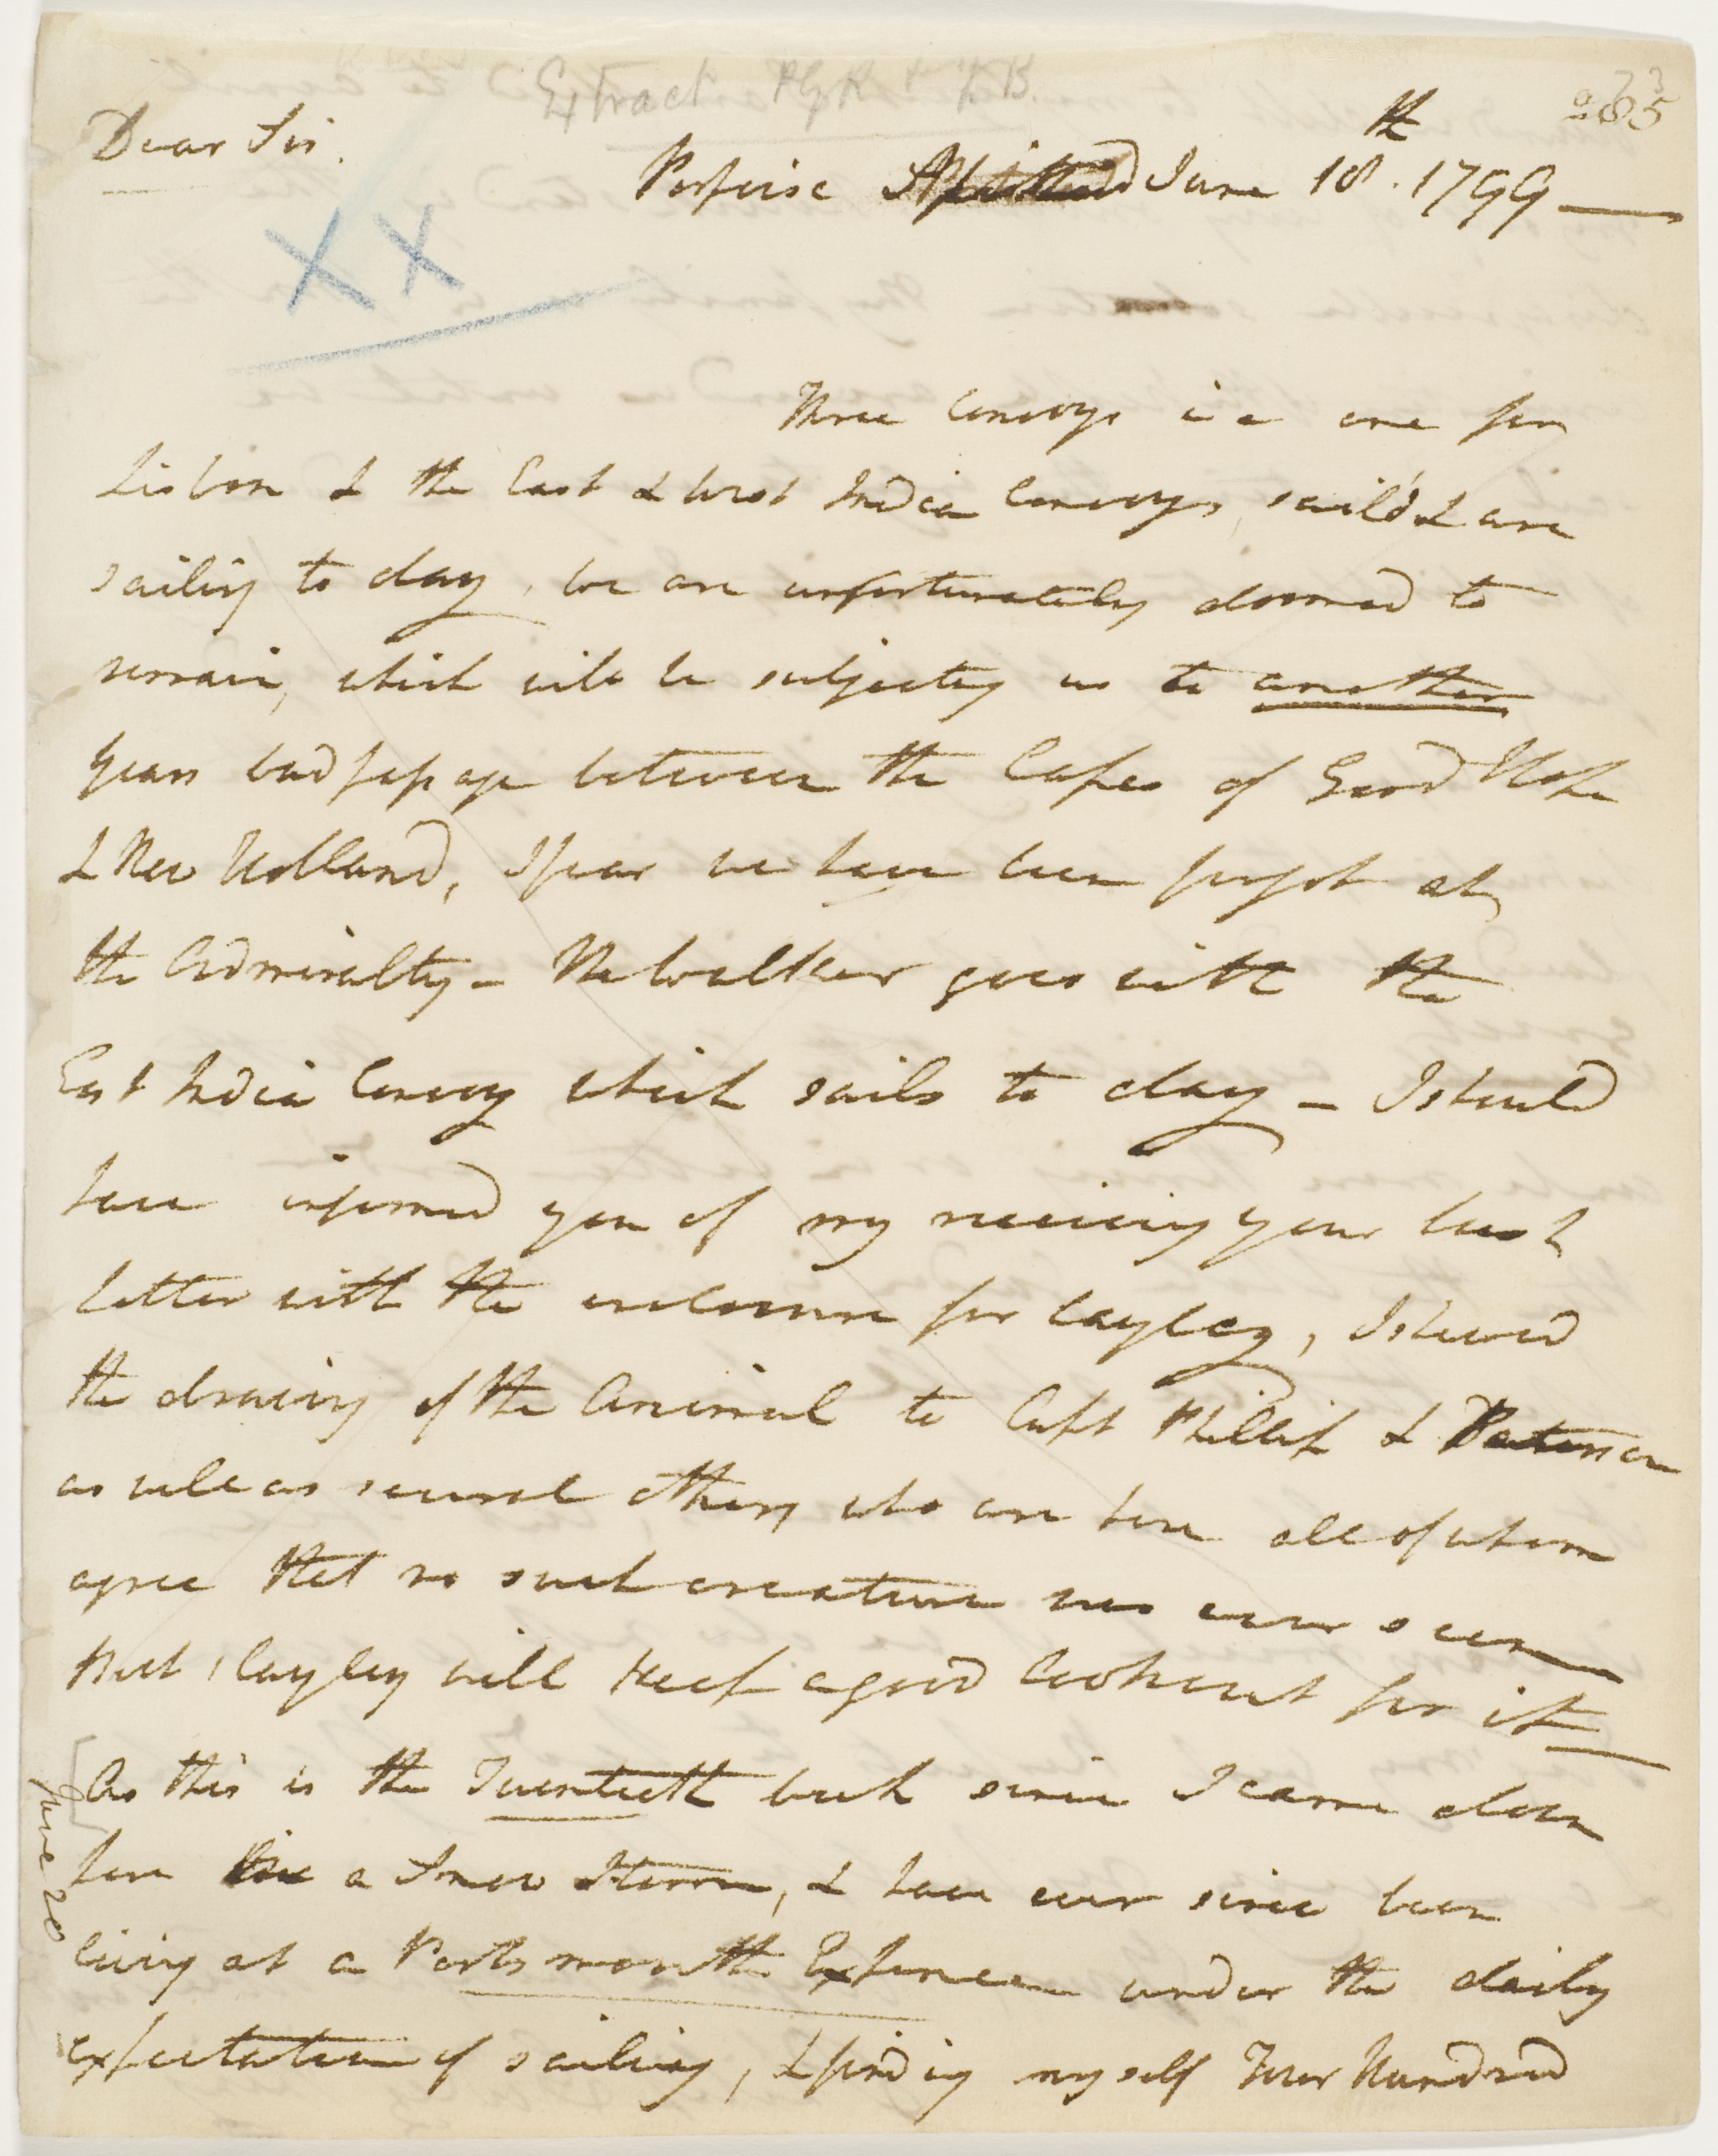 Extract PGK & FB.
235
Dear Sir.
Porpoise Spithead June 18th. 1799
XX
Three Convoys i e one for
Lisbon & the East & West India Convoys, sail'd & are
sailing to day, we are unfortunately doomed to
remain, which will be subjecting us to another
years bad passage between the Capes of Good Hope
& New Holland, I fear we have been forgot at
the Admiralty - The Walker goes with the
East India Convoy which sails to day - I should
have informed you of my receiving your last
letter with the enclosure for Cayley, I shewed
the drawing of the Animal to Capt Phillip & Paterson
as well as several others who are here all of whom
agree that no such creature was ever seen
But Cayley will keep a good lookout for it
As this is the Twentieth week since I came down
here in a Snow Storm, & have ever since been
living at a Portsmouth Expence under the daily
expectation of sailing, & finding myself Four Hundred
June 20